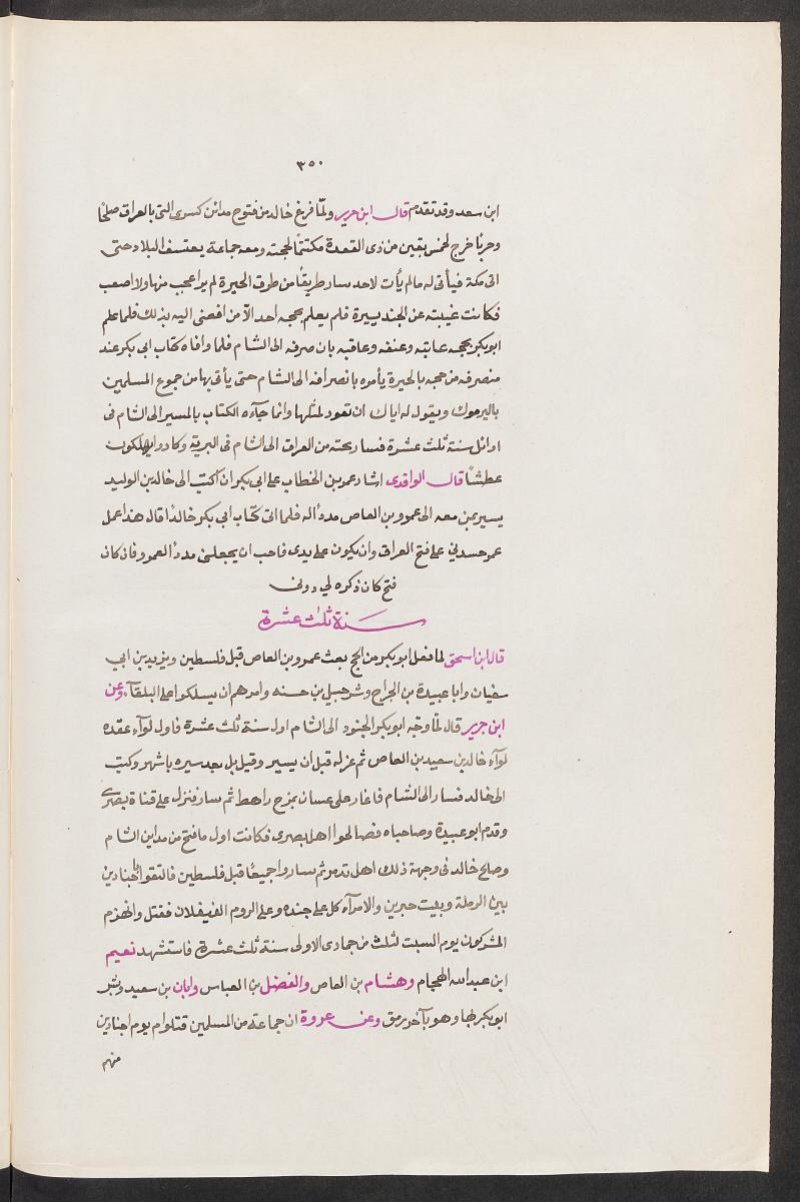 ٣٥٠
ابن سعد وقد تقدم قال ابن جرير ولمّا فرغ خالد من فتوح مدائن كسرى التى بالعراق صلحًا
وحربًا خرج لخمس بقين من ذى القعدة مكتتمًا لحجته ومعه جماعة يعتسف البلاد حتى
اتى مكة فيأتى له مالم يأت لاحد سار طريقًا من طرق الحيرة لم ير اعجب منها ولا اصعب
فكانت غيبته عن الجند يسيرة فلم يعلم بحجه احد الّا من افضى اليه بذلك فلما علم
ابو بكر بحجه عاتبه وعنفه وعاقبه بان صرفه الى الشام فلما وافاه كتاب ابى بكر عند
منصرفه من حجه بالحيرة يأمره بانصرافه الى الشام حتى يأتى بها من جموع المسلمين
باليرموك ويقول له اياك ان تعود لمثلها وانما جآءه الكتاب بالمسير الى الشام فى
اوائل سنة ثلث عشرة فسار بحته من العراق الى الشام فى البرية وكادوا يهلكون
عطشًا قال الواقدى اشار عمر بن الخطاب على ابى بكر ان اكتب الى خالد بن الوليد
يسير بمن معه الى عمرو بن العاص مددًا له فلما اتى كتاب ابى بكر خالدًا قال هذا عمل
عمر حسدنى على فتح العراق وان يكون على يدى فاحب ان يجعلنى مددًا لعمرو فان كان
فتح كان ذكره لي دونى
سنة ثلث عشرة
قال ابن اسحق لما قفل ابو بكر من الحج بعث عمرو بن العاص قبل فلسطين ويزيد بن ابي
سفيان وابا عبيدة بن الجراح وشرحبيل بن حسنه وامرهم ان يسلكوا على البلقآء وعن
ابن جرير قال لمّا وجّه ابو بكر الجنود الى الشام اول سنة ثلث عشرة فاول لوآء عقده
لوآء خالد بن سعيد بن العاص ثم عزله قبل ان يسير وقيل بل بعد سيره باشهر وكتب
الى خالد فسار الى الشام فاغار على غسان بمزج راهط ثم سار فنزل على قناة بصرى
وقدم ابو عبيدة وصاحباه فصالحوا اهل بصرى فكانت اول ما فتح من مداين الشام
وصلح خالد فى وجهة ذلك اهل تدمر ثم ساروا جميعًا قبل فلسطين فالتقوا باجنادين
بين الرملة وبيت جبرين والامرآء كل على جنده وعلى الروم القيقلان فقتل وانهزم
المشركون يوم السبت لثلث من جمادى الاولى سنة ثلث عشرة فاستشهد نعيم
ابن عبد الله النحام وهشام بن العاص والفضل بن العباس وابان بن سعيد وبشر
ابو بكر بها وهو بآخر رمق وعن عروة ان جماعة من المسلمين قتلوا م يوم اجنادين
منهم